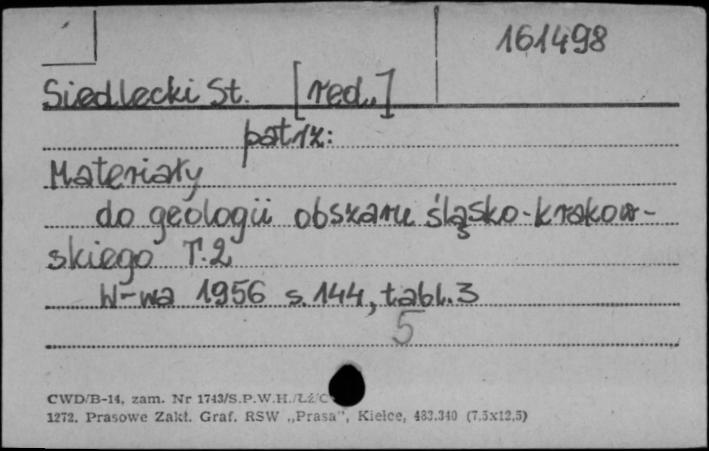 161498
Siedlecki St. [red.,]
patrz:
Materiały
do geologii obszaru śląsko-krakow-
skiego T.2
W-wa 1956 s. 144, tabl. 3
5
CWD/B-14, zam. Nr 1743/S.P.W.H./Łź/C
1272. Prasowe Zakł. Graf. RSW „Prasa", Kielce, 483.340 (7,5x12,5)